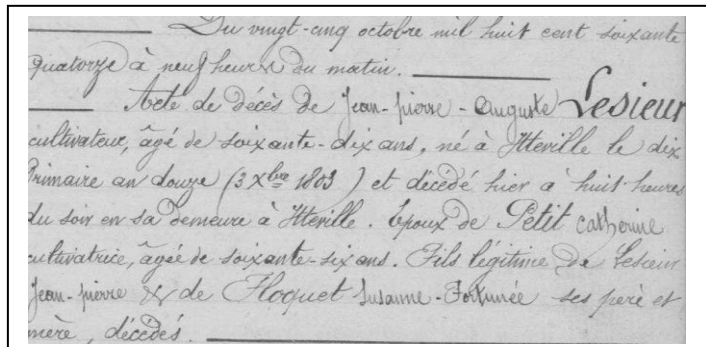 Du vingt-cinq octobre mil huit cent soixante
quatorze à neuf heures du matin.
Acte de décès de Jean-pierre-Auguste Lesieur
cultivateur, âgé de soixante-dix ans, né à Itteville le dix
frimaire an douze (3 Xbre 1803) et décédé hier à huit heures
du soir en sa demeure à Itteville. Epoux de Petit catherine
cultivatrice, âgée de soixante-six ans. Fils légitime de Lesieur
Jean-pierre & de Floquet Susanne-Fortunée ses père et
mère, décédés.